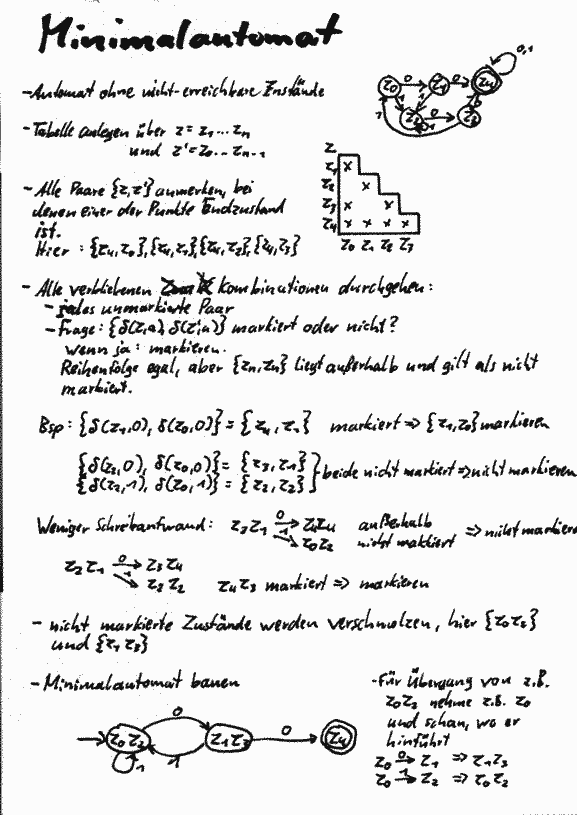 Minimalautomat
- Automat ohne nicht-erreichbare Zustände
z0 0 z1 0 z4 0,1
1 1 z2 0 z3 0
1 1
- Tabelle anlegen über z = z1 ... zn
und z' = z0 ... zn-1
z
z1 x
z2 x
z3 x x
z4 x x x x
z0 z1 z2 z3
- Alle Paare {z,z'} anmerken, bei
denen einer der Punkte Endzustand
ist.
Hier: {z4,z0},{z4,z1},{z4,z2},{z4,z3}
- Alle verbliebenen Kombinationen durchgehen:
- jedes unmarkierte Paar
- Frage: {δ(z,a), δ(z',a)} markiert oder nicht?
wenn ja: markieren.
Reihenfolge egal, aber {zn,zn} liegt außerhalb und gilt als nicht
markiert.
Bsp: {δ(z1,0), δ(z0,0)} = {z4, z1} markiert => {z1,z0} markieren
{δ(z2,0), δ(z0,0)} = {z3,z1}
{δ(z2,1), δ(z0,1)} = {z2,z2} } beide nicht markiert => nicht markieren
Weniger Schreibaufwand: z3z1 0→ z4z4 außerhalb
1→ z0z2 nicht markiert => nicht markieren
z2z1 0→ z3z4
1→ z2z2 z4z3 markiert => markieren
- nicht markierte Zustände werden verschmolzen, hier {z0z2}
und {z1z3}
- Minimalautomat bauen
z0z2 0 z1z3 0 z4
1 1
- Für Übergang von z.B.
z0z2 nehme z.B. z0
und schau, wo er
hinführt
z0 0→ z1 => z1z3
z0 1→ z2 => z0z2